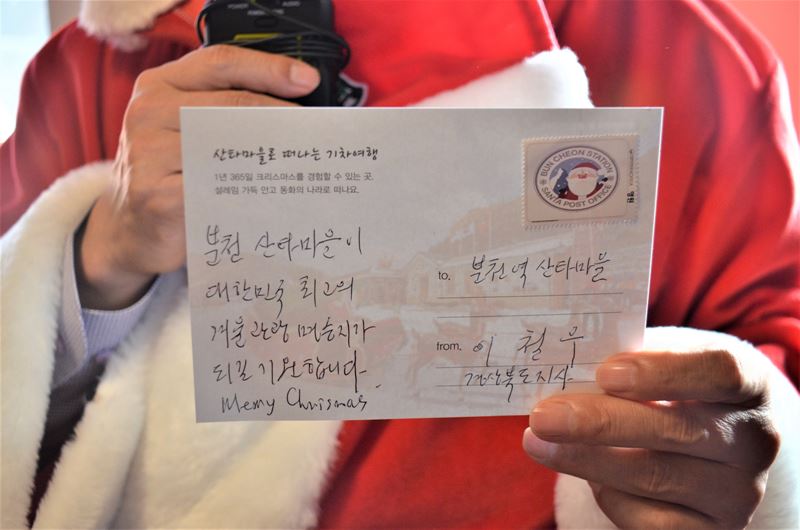 POWER AUDIO
산타마을로 떠나는 기차여행
1년 365일 크리스마스를 경험할 수 있는 곳.
설레임 가득 안고 동화의 나라로 떠나요.
BUN CHEON STATION
SANTA POST OFFICE
영원
분천 산타마을이
대한민국 최고의
겨울관광 명승지가
되길 기원합니다.
Merry Chrismas
to. 분천역 산타마을
from. 이 철 우
경상북도지사